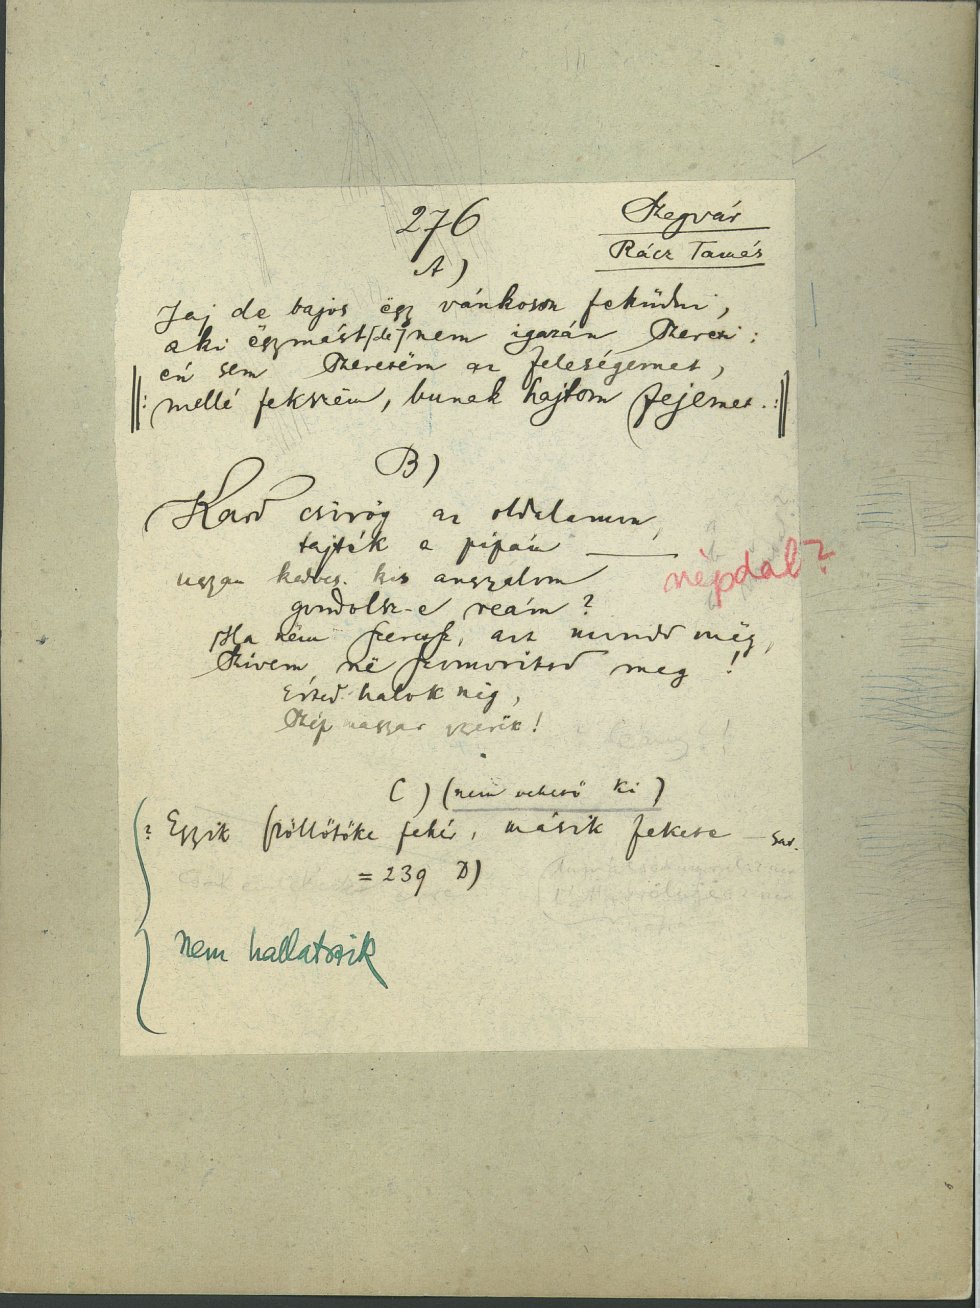 276
Szegvár
Rácz Tamás
A)
Jaj de bajos ëgy vánkoson feküdni,
aki ëgymást [de] nem igazán szereti:
én sem szeretëm az feleségemet,
‖: mellé fekszëm, bunak hajtom fejemet. :‖
B)
Kard csörög az oldalamon,
tajték a pipám —
ugyan kedves kis angyalom
gondolsz-e reám?
Ha nëm szeretsz, azt mondd mëg,
Szivem në szomoritsd meg!
Érted halok még,
Szép magyar
népdal?
C) (nem vehető ki)
? Egyik szöllőtőke fehér, másik fekete —
= 239 D)
nem hallatszik